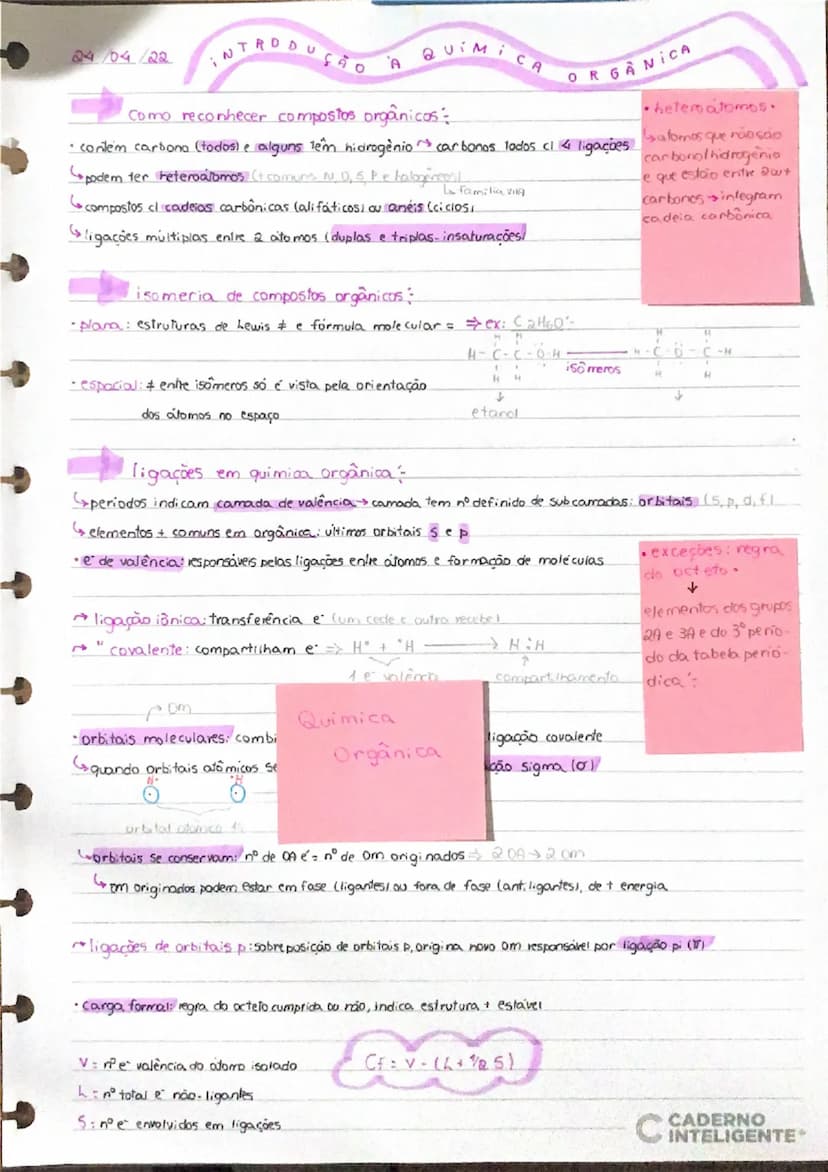 24/04/22
INTRODUÇÃO À QUÍMICA ORGÂNICA
Como reconhecer compostos orgânicos:
• contém carbono (todos) e alguns têm hidrogênio → carbonos todos c/ 4 ligações
↳ podem ter heteroátomos (+ comuns N, O, S, P e halogênios)
↳ família VIIA
↳ compostos c/ cadeias carbônicas (alifáticos) ou anéis (ciclos)
↳ ligações múltiplas entre 2 átomos (duplas e triplas-insaturações)
• heteroátomos •
↳ átomos que não são
carbono/hidrogênio
e que estão entre 2 ou +
carbonos → integram
cadeia carbônica
isomeria de compostos orgânicos:
• plana: estruturas de Lewis ≠ e fórmula molecular = ⇒ ex: C2H6O
H H H H
H-C-C-O-H H-C-O-C-H
isômeros
H H H H
• espacial: ≠ entre isômeros só é vista pela orientação
dos átomos no espaço
↓ ↓
etanol
ligações em química orgânica:
↳ períodos indicam camada de valência → camada tem nº definido de subcamadas: orbitais (s, p, d, f)
↳ elementos + comuns em orgânica: últimos orbitais s e p
• e⁻ de valência: responsáveis pelas ligações entre átomos e formação de moléculas
• exceções: regra
do octeto •
↓
elementos dos grupos
2A e 3A e do 3º perío-
do da tabela perió-
dica:
→ ligação iônica: transferência e⁻ (um cede e outro recebe)
→ " covalente: compartilham e⁻ ⇒ H• + •H → H:H
1 e⁻ valência compartilhamento
OM
• orbitais moleculares: combi
ligação covalente
↳ quando orbitais atômicos se
ção sigma (σ)
Química
Orgânica
H• •H
orbital atômico 1s
↳ orbitais se conservam: nº de OA é = nº de OM originados ⇒ 2 OA → 2 OM
↳ OM originados podem estar em fase (ligantes) ou fora de fase (antiligantes), de + energia
→ ligações de orbitais p: sobreposição de orbitais p, origina novo OM responsável por ligação pi (π)
• carga formal: regra do octeto cumprida ou não, indica estrutura + estável
V = nº e⁻ valência do átomo isolado
Cf = V - (L + 1/2 S)
L = nº total e⁻ não-ligantes
S = nº e⁻ envolvidos em ligações
CADERNO
INTELIGENTE